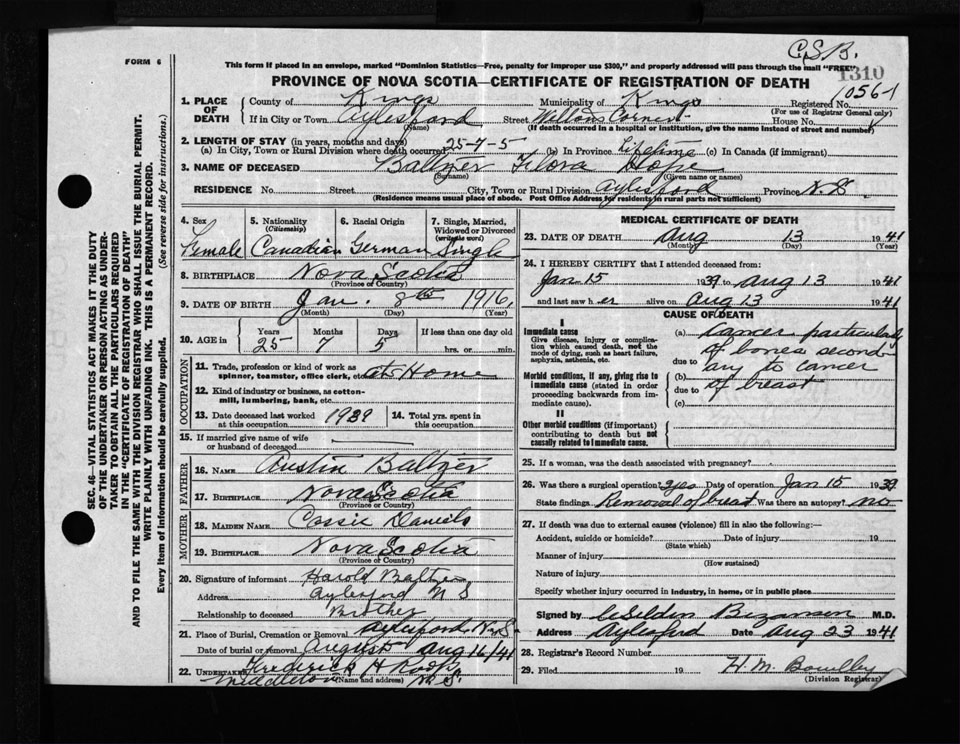 C.S.B.
FORM 6
This form if placed in an envelope, marked "Dominion Statistics—Free, penalty for improper use $300," and properly addressed will pass through the mail "FREE"
1310
PROVINCE OF NOVA SCOTIA—CERTIFICATE OF REGISTRATION OF DEATH
10561
1. PLACE OF DEATH
County of Kings Municipality of Kings Registered No.
(For use of Registrar General only)
If in City or Town Aylesford Street Weltons Corner House No.
(Name) (If death occurred in a hospital or institution, give the name instead of street and number)
2. LENGTH OF STAY (in years, months and days)
(a) In City, Town or Rural Division where death occurred 25-7-5 (b) In Province Lifetime (c) In Canada (if immigrant)
3. NAME OF DECEASED Baltzer Flora
(Surname) (Given name or names)
RESIDENCE No. Street City, Town or Rural Division Aylesford Province N.S.
(Residence means usual place of abode. Post Office Address for residents in rural parts not sufficient)
SEC. 46—VITAL STATISTICS ACT MAKES IT THE DUTY
OF THE UNDERTAKER OR PERSON ACTING AS UNDER-
TAKER TO OBTAIN ALL THE PARTICULARS REQUIRED
IN THE "CERTIFICATE OF REGISTRATION OF DEATH"
AND TO FILE THE SAME WITH THE DIVISION REGISTRAR WHO SHALL ISSUE THE BURIAL PERMIT.
WRITE PLAINLY WITH UNFADING INK. THIS IS A PERMANENT RECORD.
Every item of Information should be carefully supplied. (See reverse side for instructions.)
4. Sex 5. Nationality 6. Racial Origin 7. Single, Married,
(Citizenship) Widowed or Divorced
(write the word)
Female Canadian German Single
8. BIRTHPLACE Nova Scotia
(Province or Country)
9. DATE OF BIRTH Jan. 8th 1916,
(Month) (Day) (Year)
10. AGE in Years Months Days If less than one day old
25 7 5 hrs. or min.
OCCUPATION
11. Trade, profession or kind of work as
spinner, teamster, office clerk, etc. at Home
12. Kind of industry or business, as cotton-
mill, lumbering, bank, etc.
13. Date deceased last worked 1939 14. Total yrs. spent in
at this occupation this occupation
15. If married give name of wife
or husband of deceased
FATHER
16. NAME Austin Baltzer
17. BIRTHPLACE Nova Scotia
(Province or Country)
MOTHER
18. MAIDEN NAME Cassie Daniels
19. BIRTHPLACE Nova Scotia
(Province or Country)
20. Signature of informant Harold Baltzer
Address Aylesford N S
Relationship to deceased Brother
21. Place of Burial, Cremation or Removal Aylesford, N.S.
Date of burial or removal August Aug 16/41
22. UNDERTAKER Frederick H Roop
Middleton (Name and address) N.S.
MEDICAL CERTIFICATE OF DEATH
23. DATE OF DEATH Aug 13 1941
(Month) (Day) (Year)
24. I HEREBY CERTIFY that I attended deceased from:
Jan 15 1939 to Aug 13 1941
and last saw her alive on Aug 13 1941
CAUSE OF DEATH
I
Immediate cause
Give disease, injury or compli-
cation which caused death, not the
mode of dying, such as heart failure,
asphyxia, asthenia, etc.
(a) Cancer particularly
of bones second-
due to ary to cancer
(b) of breast
due to
(c)
Morbid conditions, if any, giving rise to
immediate cause (stated in order
proceeding backwards from im-
mediate cause).
II
Other morbid conditions (if important)
contributing to death but not
causally related to immediate cause.
25. If a woman, was the death associated with pregnancy?
26. Was there a surgical operation? yes Date of operation Jan 15 1939
State findings Removal of breast Was there an autopsy? no
27. If death was due to external causes (violence) fill in also the following:—
Accident, suicide or homicide? Date of injury 19
(State which)
Manner of injury
(How sustained)
Nature of injury
Specify whether injury occurred in industry, in home, or in public place
Signed by Bezanson M.D.
Address Aylesford Date Aug 23 1941
28. Registrar's Record Number
29. Filed 19 H. M.
(Division Registrar)